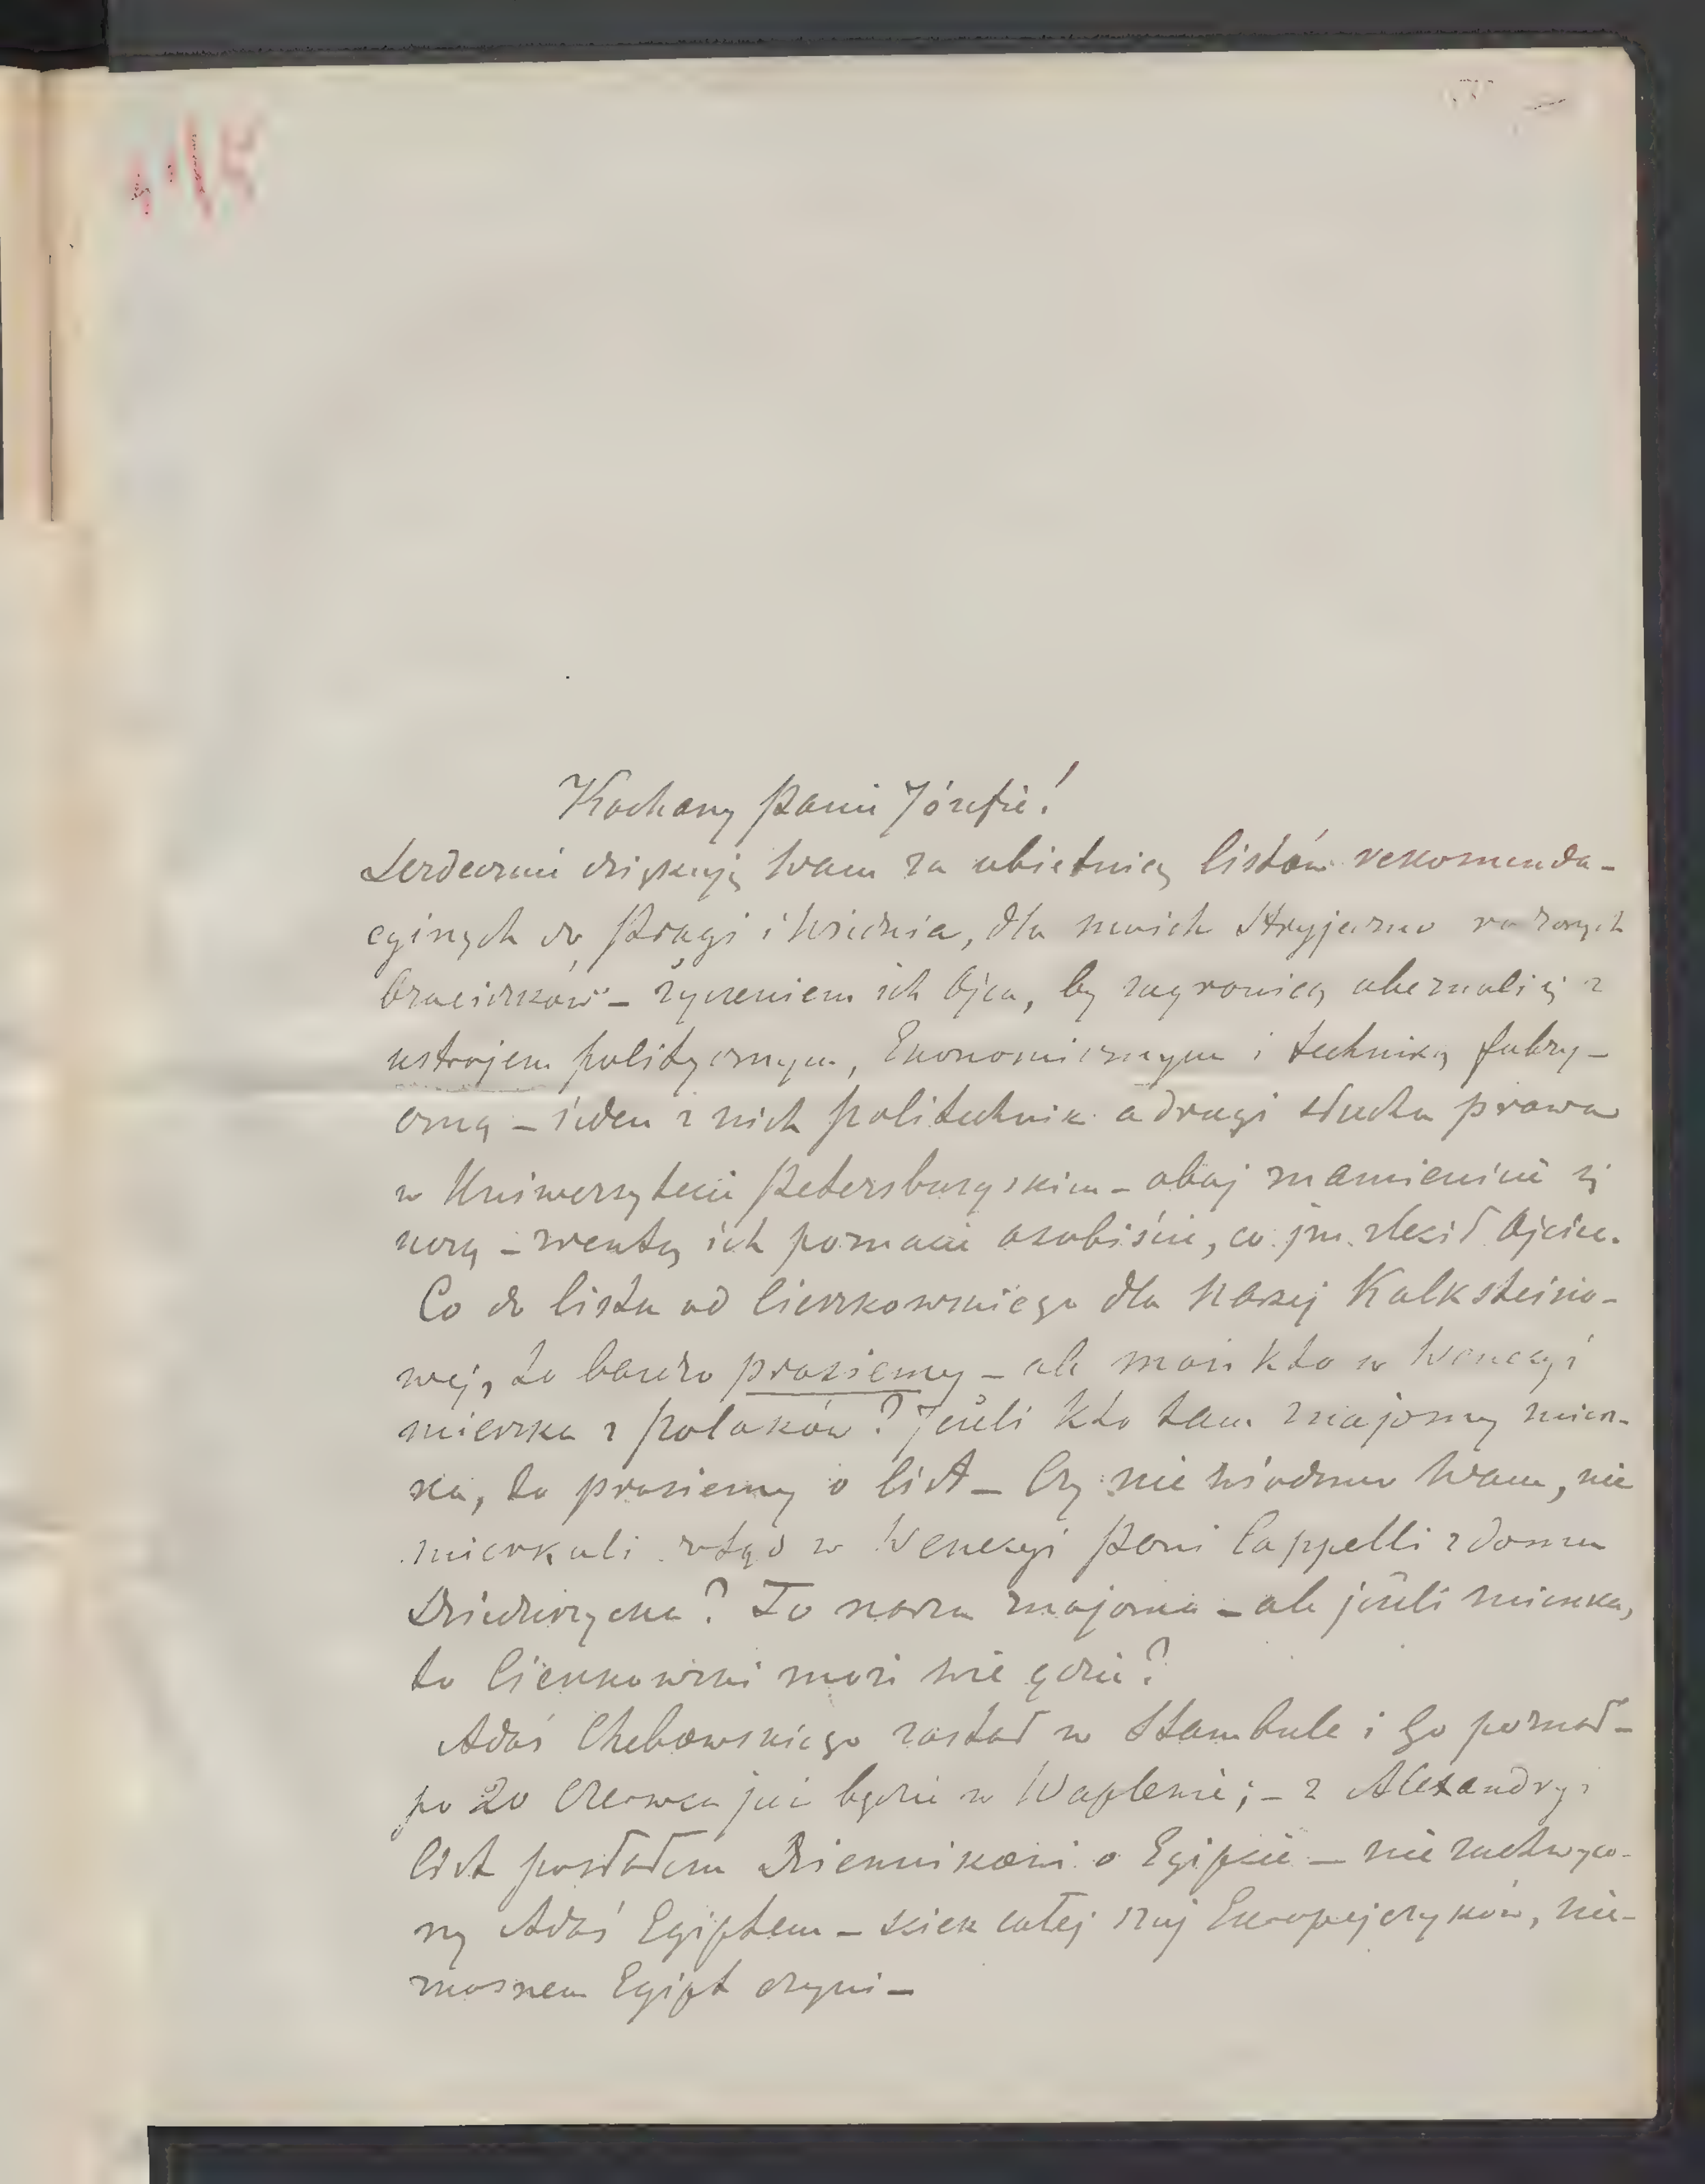 115
Kochany Panie Józefie!
Serdecznie dziękuję Wam za obietnicę listów rekomenda-
cyjnych do Pragi i Wiednia, dla moich Stryjeczno rodzonych
braciszków – życzeniem ich Ojca, by zagranicą obeznali się z
ustrojem politycznym, Ekonomicznym i techniką fabry-
czną – jeden z nich politechnik a drugi słucha prawa
w Uniwersytecie Petersburgskim – obaj znamienicie się
uczą – zresztą ich poznacie osobiście, co im zlecił Ojciec.
Co do listu od Cieszkowskiego dla Naszej Kalksteino-
wej, to bardzo prosiemy – ale może kto w Wenecyi
mieszka z Polaków? Jeżeli kto tam znajomy miesz-
ka, to prosiemy o list – Czy nie wiadomo Wam, nie
mieszkali wtąd w Wenecyi Pani Cappelli z domu
Dzieduszycka? To nasza znajoma – ale jeżeli mieszka,
to Cieszkowski może wie gdzie?
Adaś Chebowskiego zastał w Stambule i Go poznał –
po 20 Czerwca już będzie w Waplewie; – z Alexandryi
list posłałem Dziennikowi o Egipcie – nie zachwyco-
ny Adaś Egiptem – ściek całej Europejczyków, nie-
znośnem Egipt czyni –